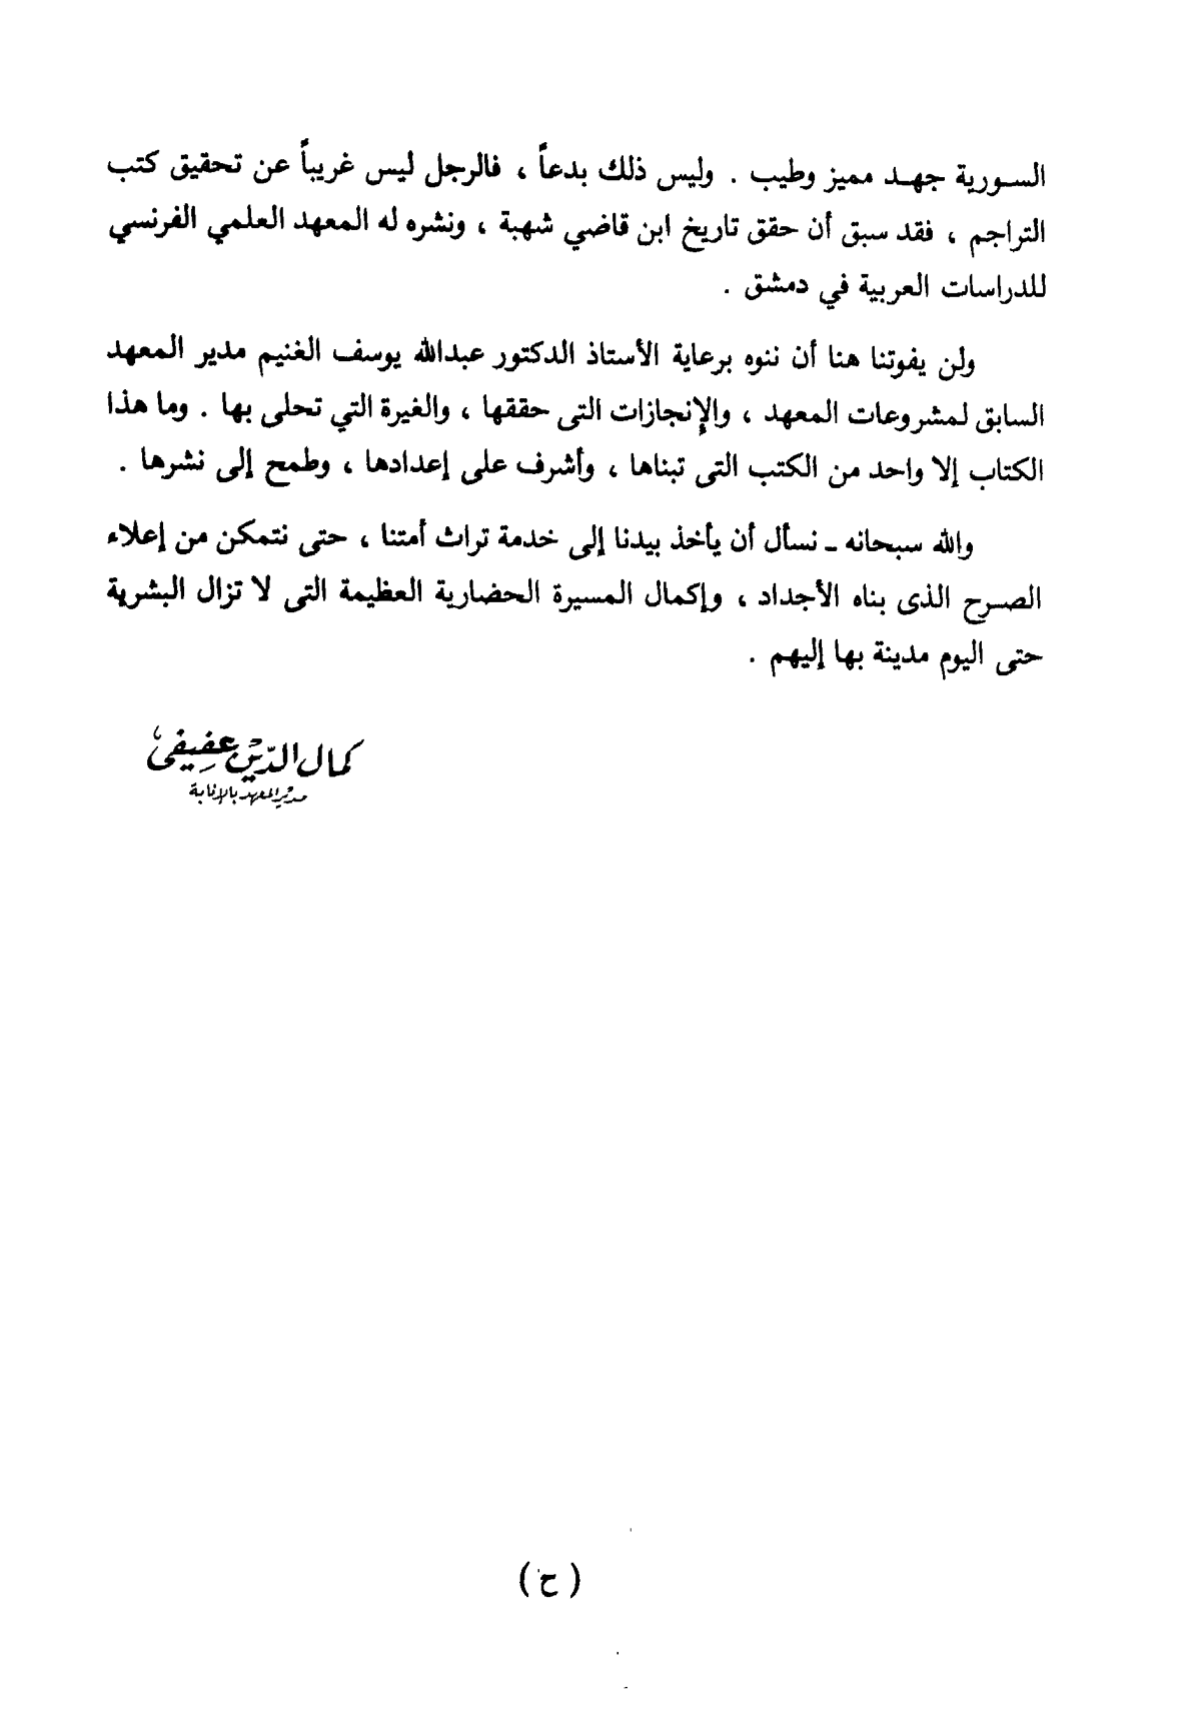 السورية جهد مميز وطيب . وليس ذلك بدعاً ، فالرجل ليس غريباً عن تحقيق كتب
التراجم ، فقد سبق أن حقق تاريخ ابن قاضي شهبة ، ونشره له المعهد العلمي الفرنسي
للدراسات العربية في دمشق .
ولن يفوتنا هنا أن ننوه برعاية الأستاذ الدكتور عبدالله يوسف الغنيم مدير المعهد
السابق لمشروعات المعهد ، والإنجازات التى حققها ، والغيرة التي تحلى بها . وما هذا
الكتاب إلا واحد من الكتب التى تبناها ، وأشرف على إعدادها ، وطمح إلى نشرها .
والله سبحانه ـ نسأل أن يأخذ بيدنا إلى خدمة تراث أمتنا ، حتى نتمكن من إعلاء
الصرح الذى بناه الأجداد ، وإكمال المسيرة الحضارية العظيمة التى لا تزال البشرية
حتى اليوم مدينة بها إليهم .
كمال الدّين عفيفى
مدير المعهد بالإنابة
( ح )